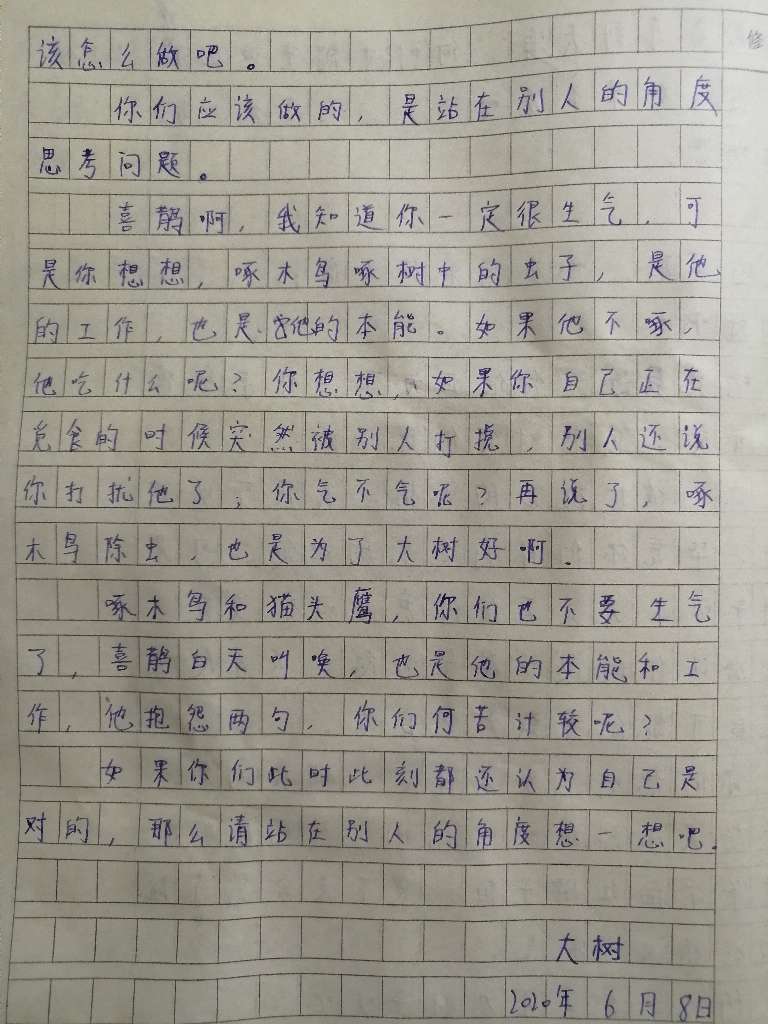 修
该怎么做吧。
你们应该做的，是站在别人的角度
思考问题。
喜鹊啊，我知道你一定很生气，可
是你想想，啄木鸟啄树中的虫子，是他
的工作，也是他的本能。如果他不啄，
他吃什么呢？你想想，如果你自己正在
觅食的时候突然被别人打搅，别人还说
你打扰他了，你气不气呢？再说了，啄
木鸟除虫，也是为了大树好啊．
啄木鸟和猫头鹰，你们也不要生气
了，喜鹊白天叫唤，也是他的本能和工
作，他抱怨两句，你们何苦计较呢？
如果你们此时此刻都还认为自己是
对的，那么请站在别人的角度想一想吧．
大树
2020年6月8日